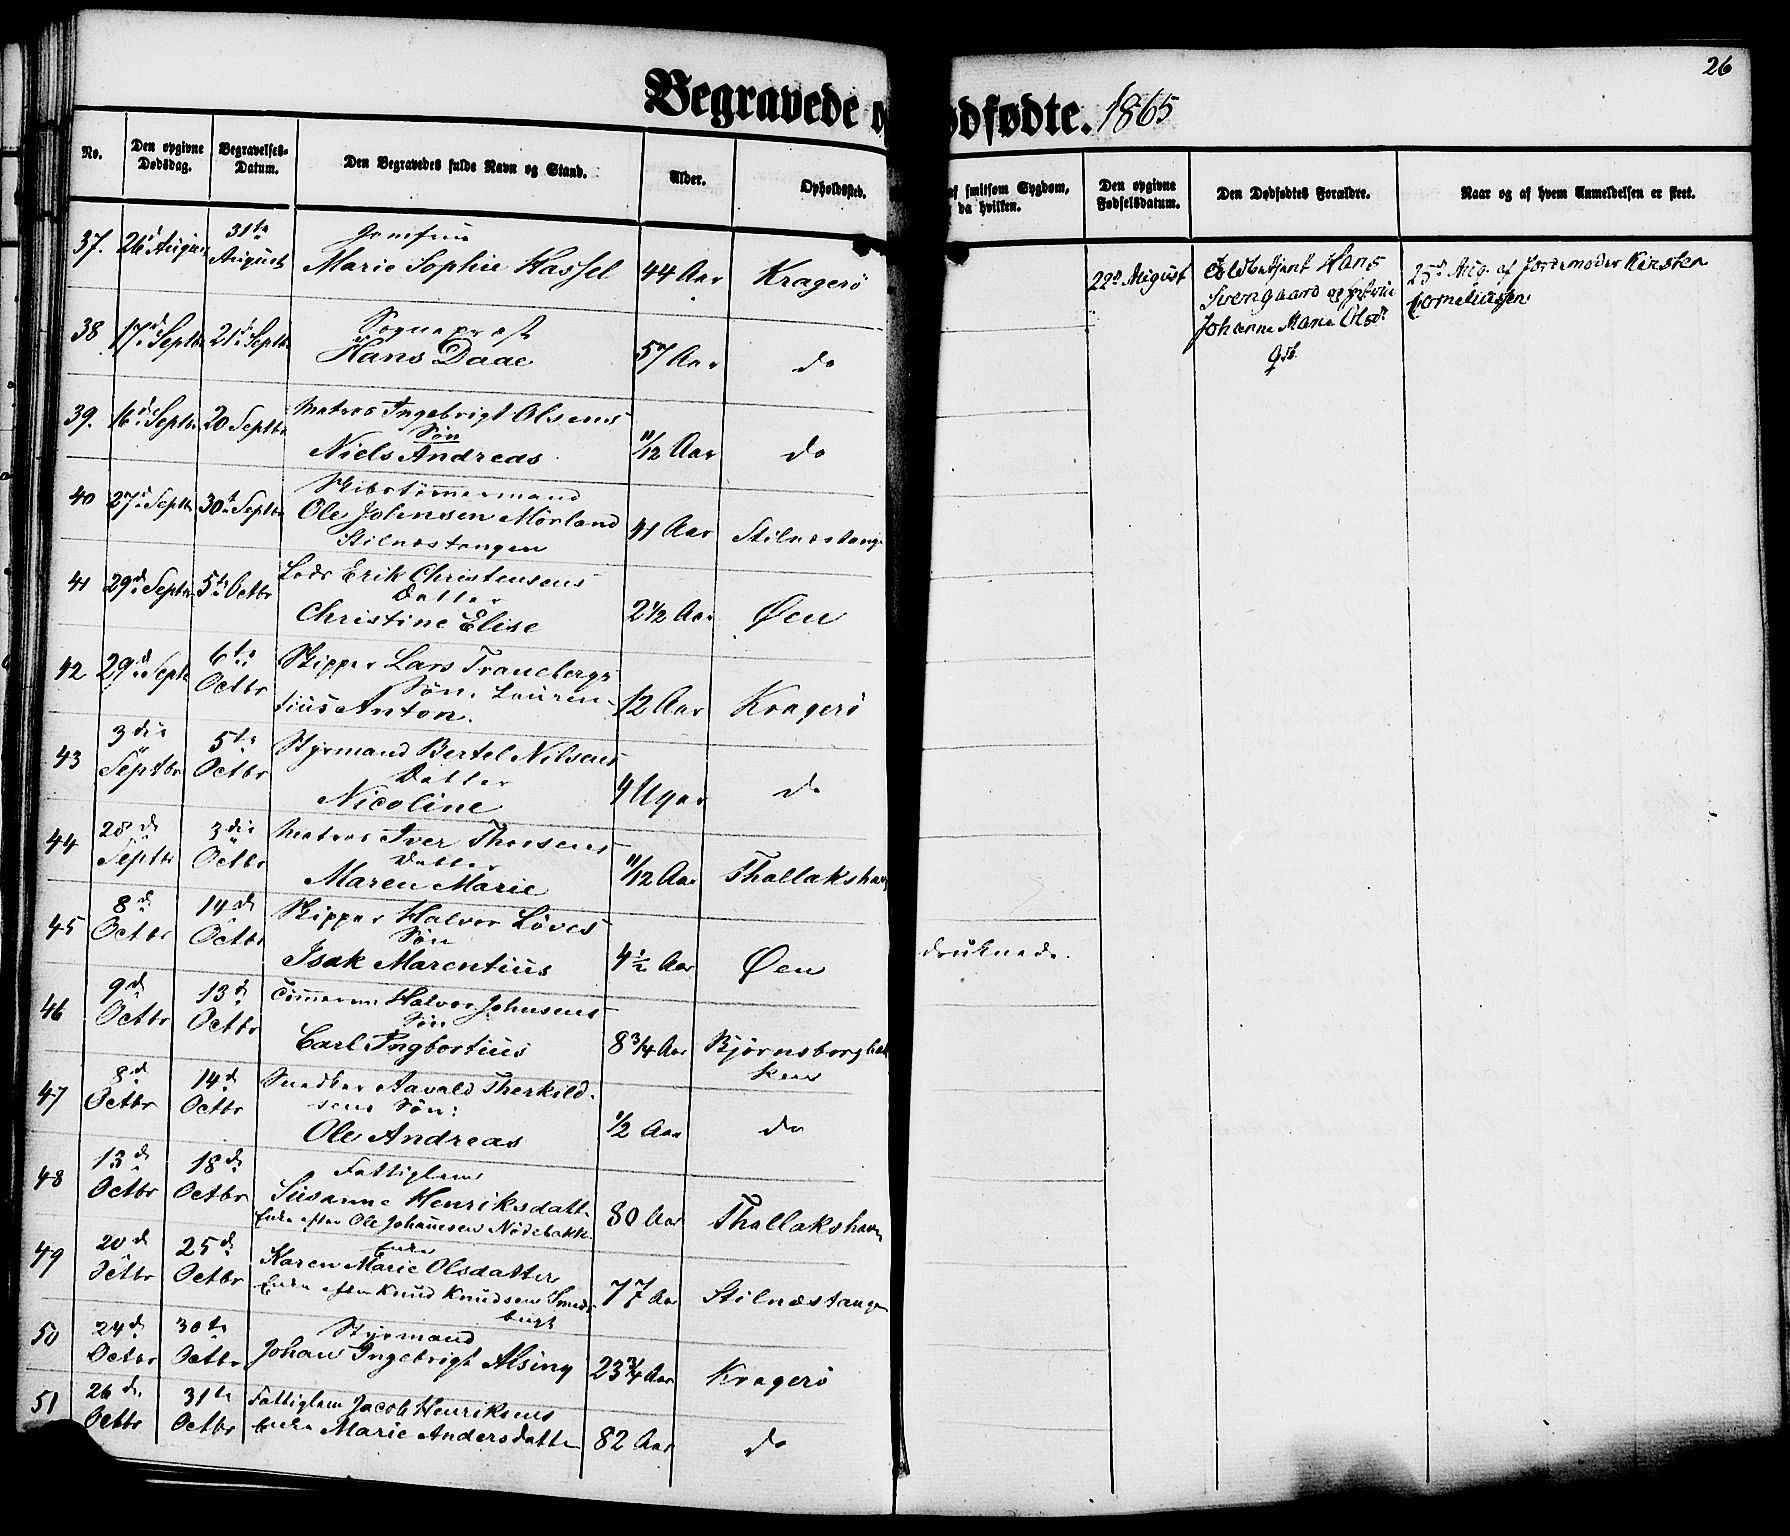 26
Begravede o
ødfødte. 1865
No.
Den opgivne
Dødsdag.
Begravelses-
Datum.
Den Begravedes fulde Navn og Stand.
Alder.
Opholdssted.
af smitsom Sygdom,
da hvilken.
Den opgivne
Fødselsdatum.
Den Dødfødtes Forældre.
Naar og af hvem Anmeldelsen er skeet.
37. 26 August 31te August
Jomfrue
Marie Sophie Hassel 44 Aar Kragerö
22de August
Hans
Svengaard og
Johanne Marie Olsd.
25de Aug. af Jordemoder Kirsten
Corneliussen
38 17de Septbr 21de Septbr
Sogneprest
Hans Daae 57 Aar do
39. 16de Septbr 20 Septbr
Matros Ingebrigt Olsens
Søn
Niels Andreas 11/12 Aar do
40 27de Septbr 30te Septbr
Skibstömmermand
Ole Johnsen Mörland
Stilnæstangen 41 Aar Stilnæstange
41 29de Septbr 5te Octbr
Lods Erik Christensens
Datter
Christine Elise 2 1/2 Aar Øen
42 29de Septb 6te Octbr
Skipper Lars Tranebergs
Søn. Lauren-
tius Anton. 12 Aar Kragerö
43 3die Septbr 5te Octbr
Styrmand Bertel Nilsens
Datter
Nicoline 4 Uger do
44 28de Septbr 3die Octbr
Matros Iver Thorsens
Datter
Maren Marie 11/12 Aar Thallakshavn
45 8de Octbr 14de Octbr
Skipper Halvor Löves
Søn
Isak Marentius 4 1/2 Aar Øen
druknede.
46 9de Octbr 13de Octbr
Tömmerm. Halvor Johnsens
Søn
Carl Ingbortius 8 3/4 Aar Björnsborgbak
ken
47 8de Octbr 14de Octbr
Snedker Aavald Therkild-
sens Søn:
Ole Andreas 1/2 Aar do
48 13de Octbr 18de Octbr
Fattiglem
Susanne Henriksdatt.
Enke efter Ole Johannesen Nödebakk 80 Aar Thallakshavn
49 20de Octbr 25de Octbr
Enke
Karen Marie Olsdatter
Enke efter Knud Knudsen Smeds-
bugt 77 Aar Stilnæstangen
50 24de Octbr 30te Octbr
Styrmand
Johan Ingebrigt Alsing 23 3/4 Aar Kragerö
51 26de Octbr 31te Octbr
Fattiglem Jacob Henriksens
Enke Marie Andersdatter 82 Aar do